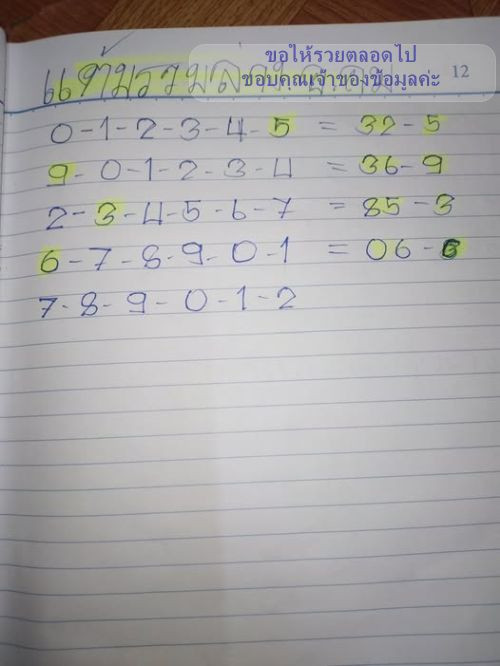 ขอให้รวยตลอดไป
ขอบคุณเจ้าของข้อมูลค่ะ
12
แต้มรวมล่าง
0-1-2-3-4-5 = 32-5
9-0-1-2-3-4 = 36-9
2-3-4-5-6-7 = 85-3
6-7-8-9-0-1 = 06-6
7-8-9-0-1-2